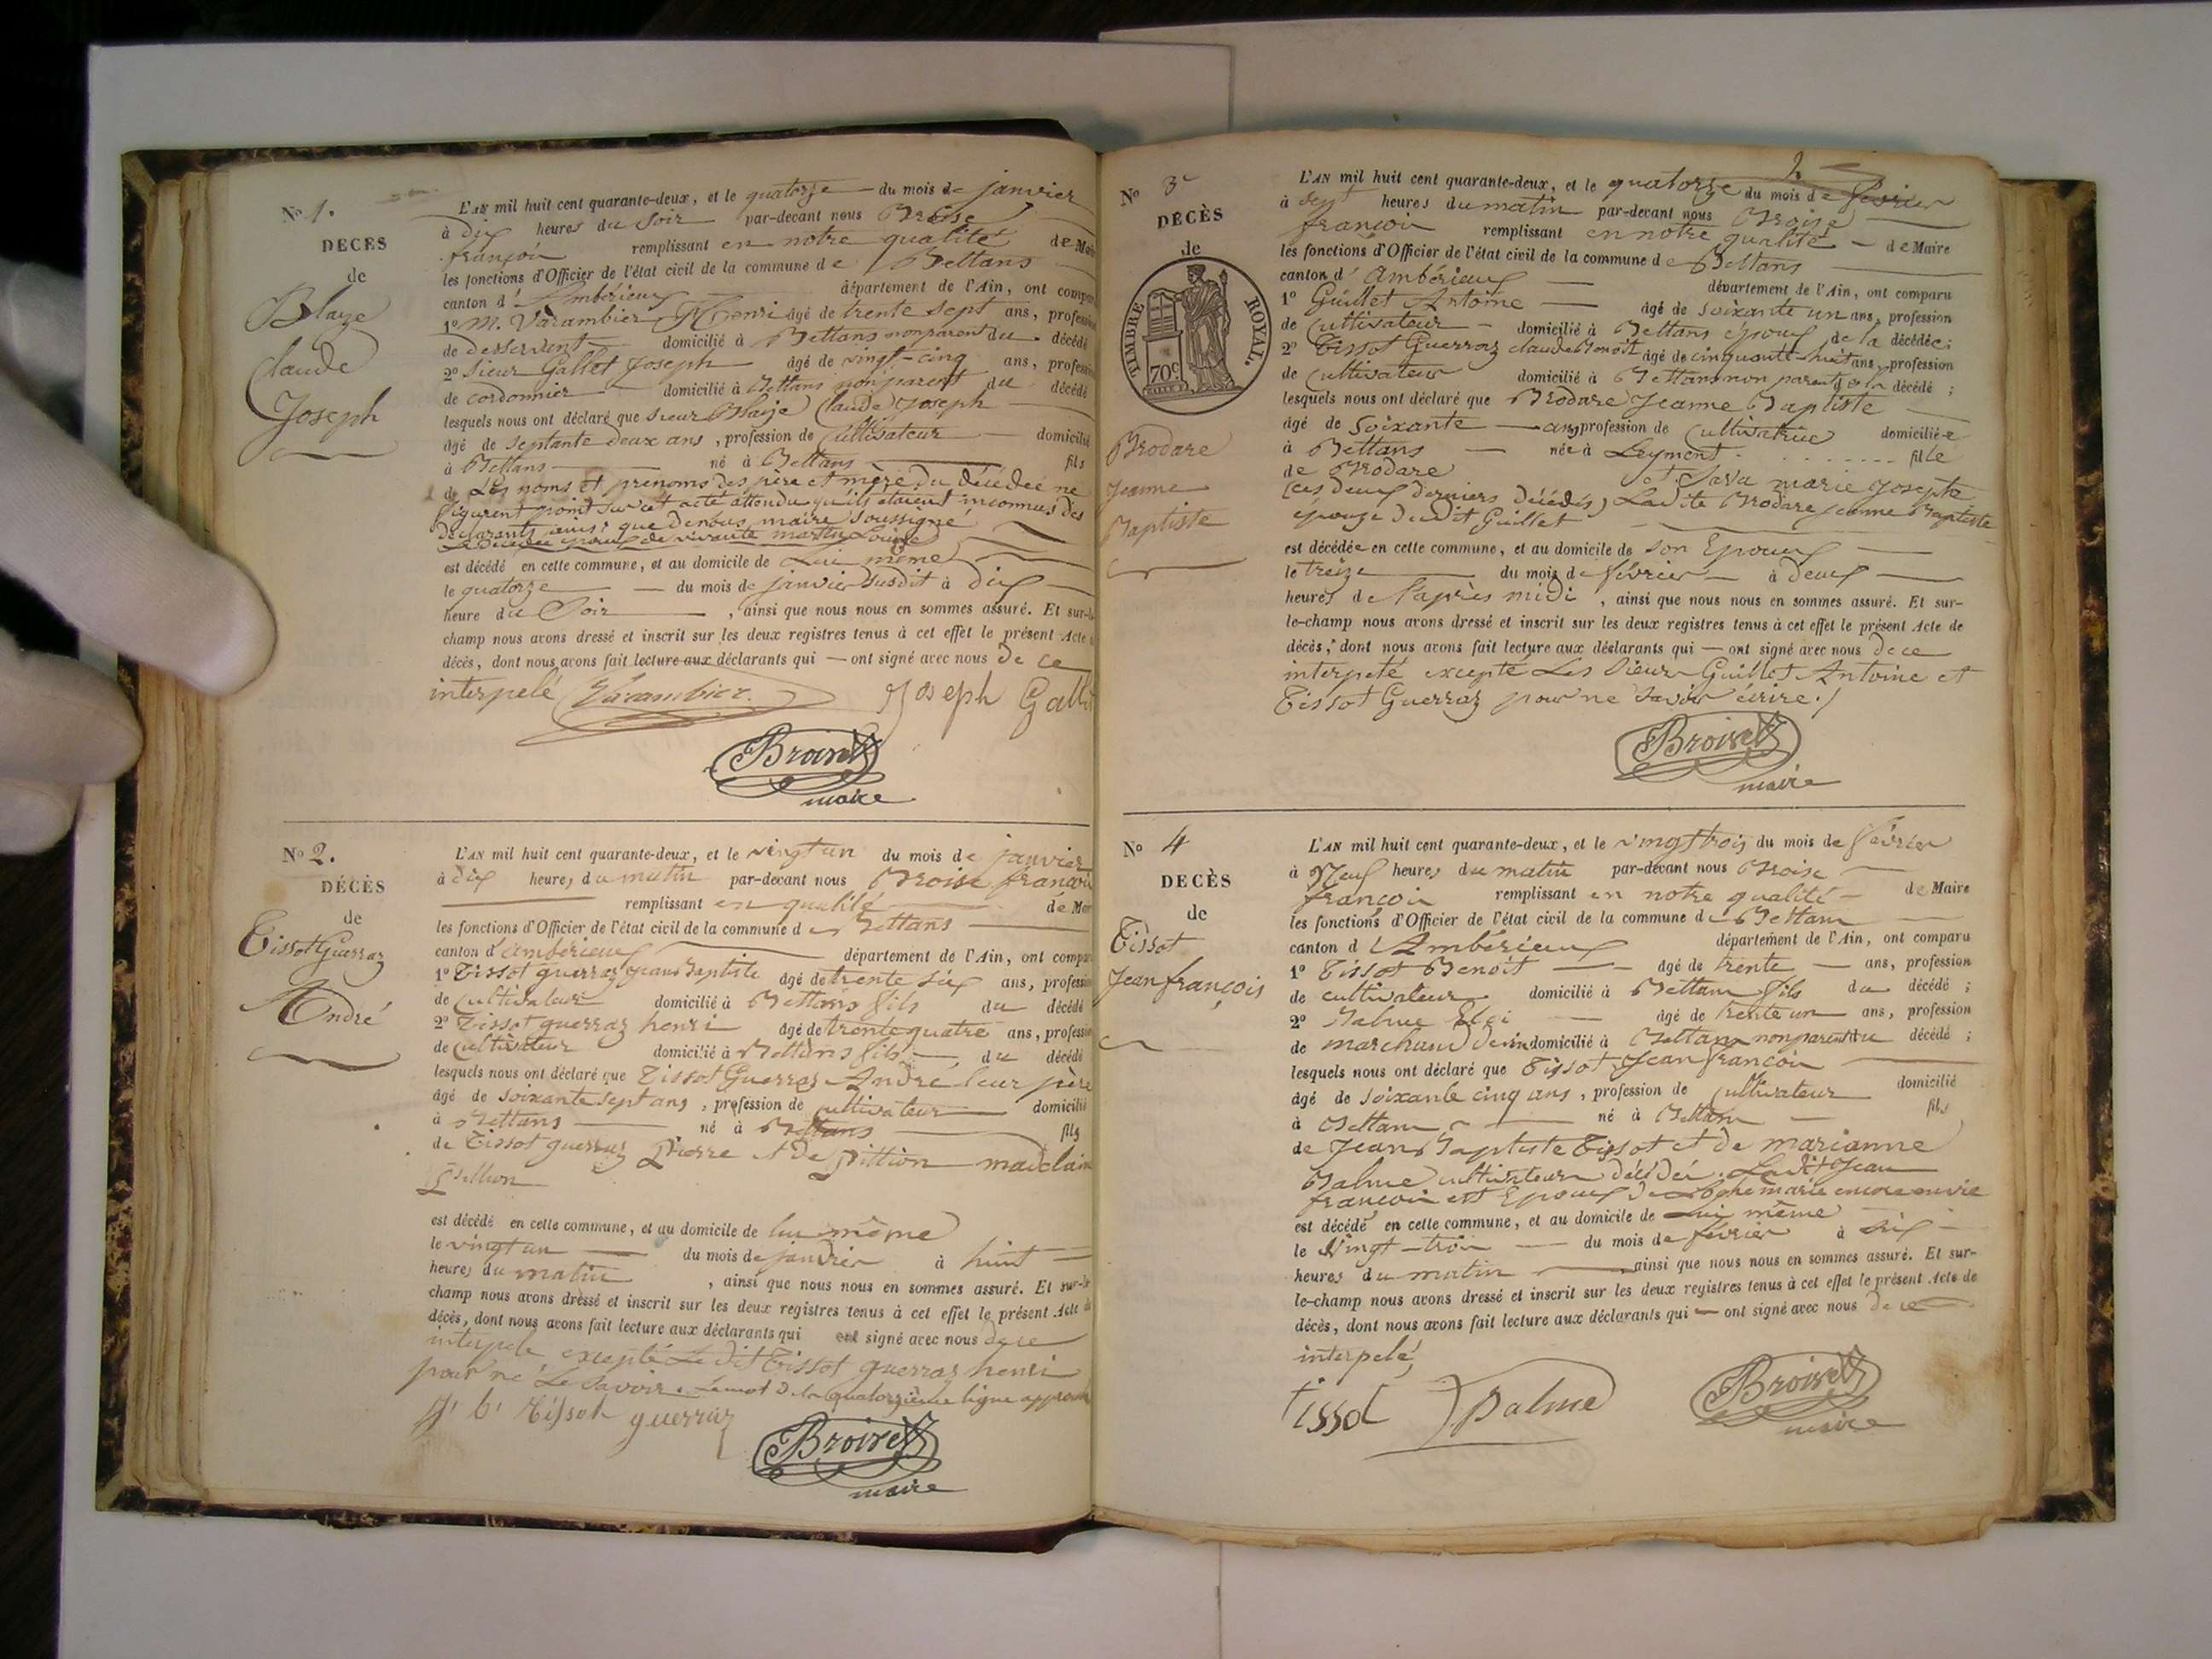 N° 1.
DÉCÈS
de
Blaye
Claude
Joseph
L'AN mil huit cent quarante-deux, et le quatorze du mois de janvier
à dix heures du soir par-devant nous Broise
françois remplissant en notre qualité de Mai
les fonctions d'Officier de l'état civil de la commune de Bettans
canton d'Ambérieux département de l'Ain, ont compa
1° M. Varambier Henri âgé de trente sept ans, profession
de desservent domicilié à Bettans non parent du décédé
2° Sieur Gallet Joseph âgé de vingt-cinq ans, profession
de cordonnier domicilié à Bettans non parent du décédé
lesquels nous ont déclaré que sieur Blaije Claude Joseph
âgé de septante deux ans, profession de Cultivateur domicilié
à Bettans né à Bettans fils
de Les noms et prenoms des père et mère du décédée ne
figurent point sur cet acte attendu qu'ils étaient inconnus des
déclarants, ainsi que denous, maire soussigné
Le décédée époux de vivante martin Louise
est décédé en cette commune, et au domicile de Lui même
le quatorze du mois de janvier susdit à dix
heure du Soir, ainsi que nous nous en sommes assuré. Et sur-le
champ nous avons dressé et inscrit sur les deux registres tenus à cet effet le présent Acte d
décès, dont nous avons fait lecture aux déclarants qui — ont signé avec nous De ce
interpelé Varambier Joseph Gall
Broise
maire
N° 2.
DÉCÈS
de
Tissot Guerraz
André
L'AN mil huit cent quarante-deux, et le vingt un du mois de janvier
à dix heures du matin par-devant nous Broise françois
remplissant en qualité de Mai
les fonctions d'Officier de l'état civil de la commune de Bettans
canton d'ambérieux département de l'Ain, ont compa
1° Tissot guerraz jean Baptiste âgé de trente six ans, profession
de Cultivateur domicilié à Bettans fils du décédé
2° Tissot guerraz henri âgé de trente quatre ans, profession
de Cultivateur domicilié à Bettans fils du décédé
lesquels nous ont déclaré que Tissot Guerraz André leur père
âgé de soixante sept ans, profession de cultivateur domicilié
à Bettans né à Bettans fils
de Tissot guerraz Pierre et De pittion madelaine
est décédé en cette commune, et au domicile de lui même
le vingt un du mois de janvier à huit
heures du matin, ainsi que nous nous en sommes assuré. Et sur-le
champ nous avons dressé et inscrit sur les deux registres tenus à cet effet le présent Acte de
décès, dont nous avons fait lecture aux déclarants qui ont signé avec nous de ce
interpelé excepté Le dit Tissot guerraz henri
pour ne Le savoir. Le mot De la quatorzième ligne approuvé
J. b. tissot guerraz
Broise
maire
2
N° 3e
DÉCÈS
de
TIMBRE ROYAL.
70c
Brodare
Jeanne
Baptiste
L'AN mil huit cent quarante-deux, et le quatorze du mois de février
à sept heures du matin par-devant nous Broise
françois remplissant en notre qualité de Maire
les fonctions d'Officier de l'état civil de la commune de Bettans
canton d'Ambérieux département de l'Ain, ont comparu
1° Guillet Antoine âgé de soixante un ans, profession
de Cultivateur domicilié à Bettans époux de la décédée;
2° Tissot Guerraz claude Benoît âgé de cinquante-huit ans, profession
de Cultivateur domicilié à Bettans non parent de la décédé;
lesquels nous ont déclaré que Brodare Jeanne Baptiste
âgé de Soixante ans, profession de Cultivatrice domiciliée
à Bettans née à Leyment fille
de Brodare et Sava marie Josephte
(ces deux derniers Décédés) Ladite Brodare jeanne Baptiste
épouze dudit Guillet
est décédée en cette commune, et au domicile de son Epoux
le treize du mois de février à deux
heures de l'après midi, ainsi que nous nous en sommes assuré. Et sur-
le-champ nous avons dressé et inscrit sur les deux registres tenus à cet effet le présent Acte de
décès, dont nous avons fait lecture aux déclarants qui — ont signé avec nous de ce
interpelé excepté Les Sieurs Guillet Antoine et
Tissot Guerraz pour ne savoir écrire./
Broise
maire
N° 4
DECÈS
de
Tissot
Jean françois
L'AN mil huit cent quarante-deux, et le vingt trois du mois de février
à Neuf heures du matin par-devant nous Broise
françois remplissant en notre qualité de Maire
les fonctions d'Officier de l'état civil de la commune de Bettans
canton d'Ambérieux département de l'Ain, ont comparu
1° Tissot Benoit âgé de trente ans, profession
de cultivateur domicilié à Bettans fils du décédé;
2° Balme Eloi âgé de trente un ans, profession
de marchand de vin domicilié à Bettans non parent du décédé;
lesquels nous ont déclaré que Tissot Jean françois
âgé de soixante cinq ans, profession de Cultivateur domicilié
à Bettans né à Bettans fils
de Jean Baptiste Tissot et de marianne
Balme cultivateurs décédés. Ledit Jean
françois est Epoux de marie encore envie
est décédé en cette commune, et au domicile de Lui même
le Vingt-trois du mois de février à six
heures du matin, ainsi que nous nous en sommes assuré. Et sur-
le-champ nous avons dressé et inscrit sur les deux registres tenus à cet effet le présent Acte de
décès, dont nous avons fait lecture aux déclarants qui — ont signé avec nous de ce
interpelé,
tissot Balme Broise
maire